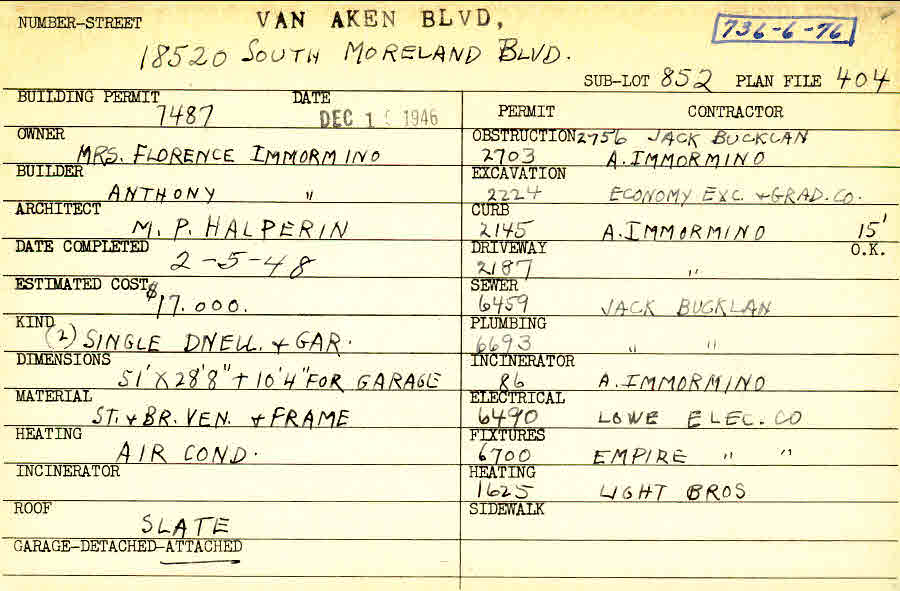 NUMBER-STREET VAN AKEN BLVD, 736-6-76
18520 SOUTH MORELAND BLVD.
SUB-LOT 852 PLAN FILE 404
BUILDING PERMIT DATE
7487 DEC 1 1946
OWNER
MRS. FLORENCE IMMORMINO
BUILDER
ANTHONY "
ARCHITECT
M. P. HALPERIN
DATE COMPLETED
2-5-48
ESTIMATED COST
$17.000.
KIND
(2) SINGLE DWELL. & GAR.
DIMENSIONS
51' X 28'8" + 10'4" FOR GARAGE
MATERIAL
ST. & BR. VEN. & FRAME
HEATING
AIR COND.
INCINERATOR
ROOF
SLATE
GARAGE-DETACHED-ATTACHED
PERMIT CONTRACTOR
OBSTRUCTION 2756 JACK BUCKLAN
2703 A. IMMORMINO
EXCAVATION
2224 ECONOMY EXC. & GRAD. CO.
CURB
2145 A. IMMORMINO 15'
DRIVEWAY O.K.
2187 "
SEWER
6459 JACK BUCKLAN
PLUMBING
6693 " "
INCINERATOR
86 A. IMMORMINO
ELECTRICAL
6490 LOWE ELEC. CO
FIXTURES
6700 EMPIRE " "
HEATING
1625 LIGHT BROS
SIDEWALK